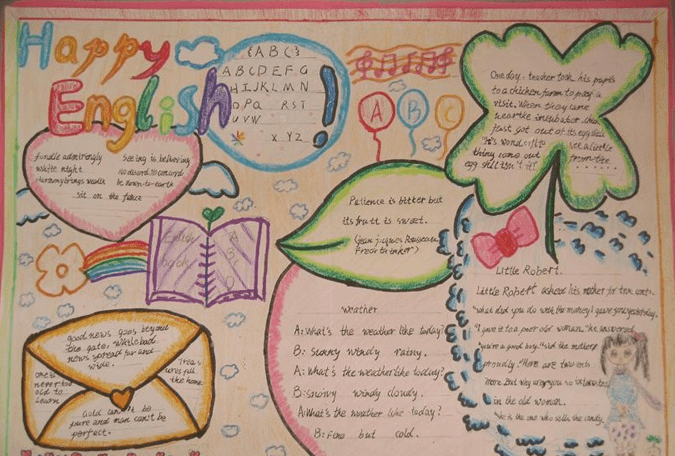 Happy
English!
{ABC}
ABCDEFG
HIJKLMN
OPQ RST
UVW
XYZ
A B C
One day. teacher took his pupils
to a chicken farm to pay a
visit. When they
just got out of its
thing come out
egg shell isn't it!
Seeing is believing
white night
be down-to-earth
sit on the fence
Patience is bitter but
its fruit is sweet.
(Jean Jacques Rousseau,
French thinker)
English A
book B
good news goes beyond
the gate, while bad
news spread far and
wide.
one is
never too
old to
learn
Treas
ures fill
the home.
Gold can't be
pure and man can't be
perfect.
weather
A: What's the weather like today?
B: Sunny windy rainy.
A: What's the weather like today?
B: Snowy windy cloudy.
A: What's the weather like today?
B: Fine but cold.
Little Robert.
Little Robert asked his mother for two cents.
"What did you do with the money I gave you yesterday."
"I gave it to a poor old woman," he answered
"you're a good boy," said the mother
proudly. "Here are two cents
more. But why are you so interested
in the old woman.
"She is the one who sells the candy.